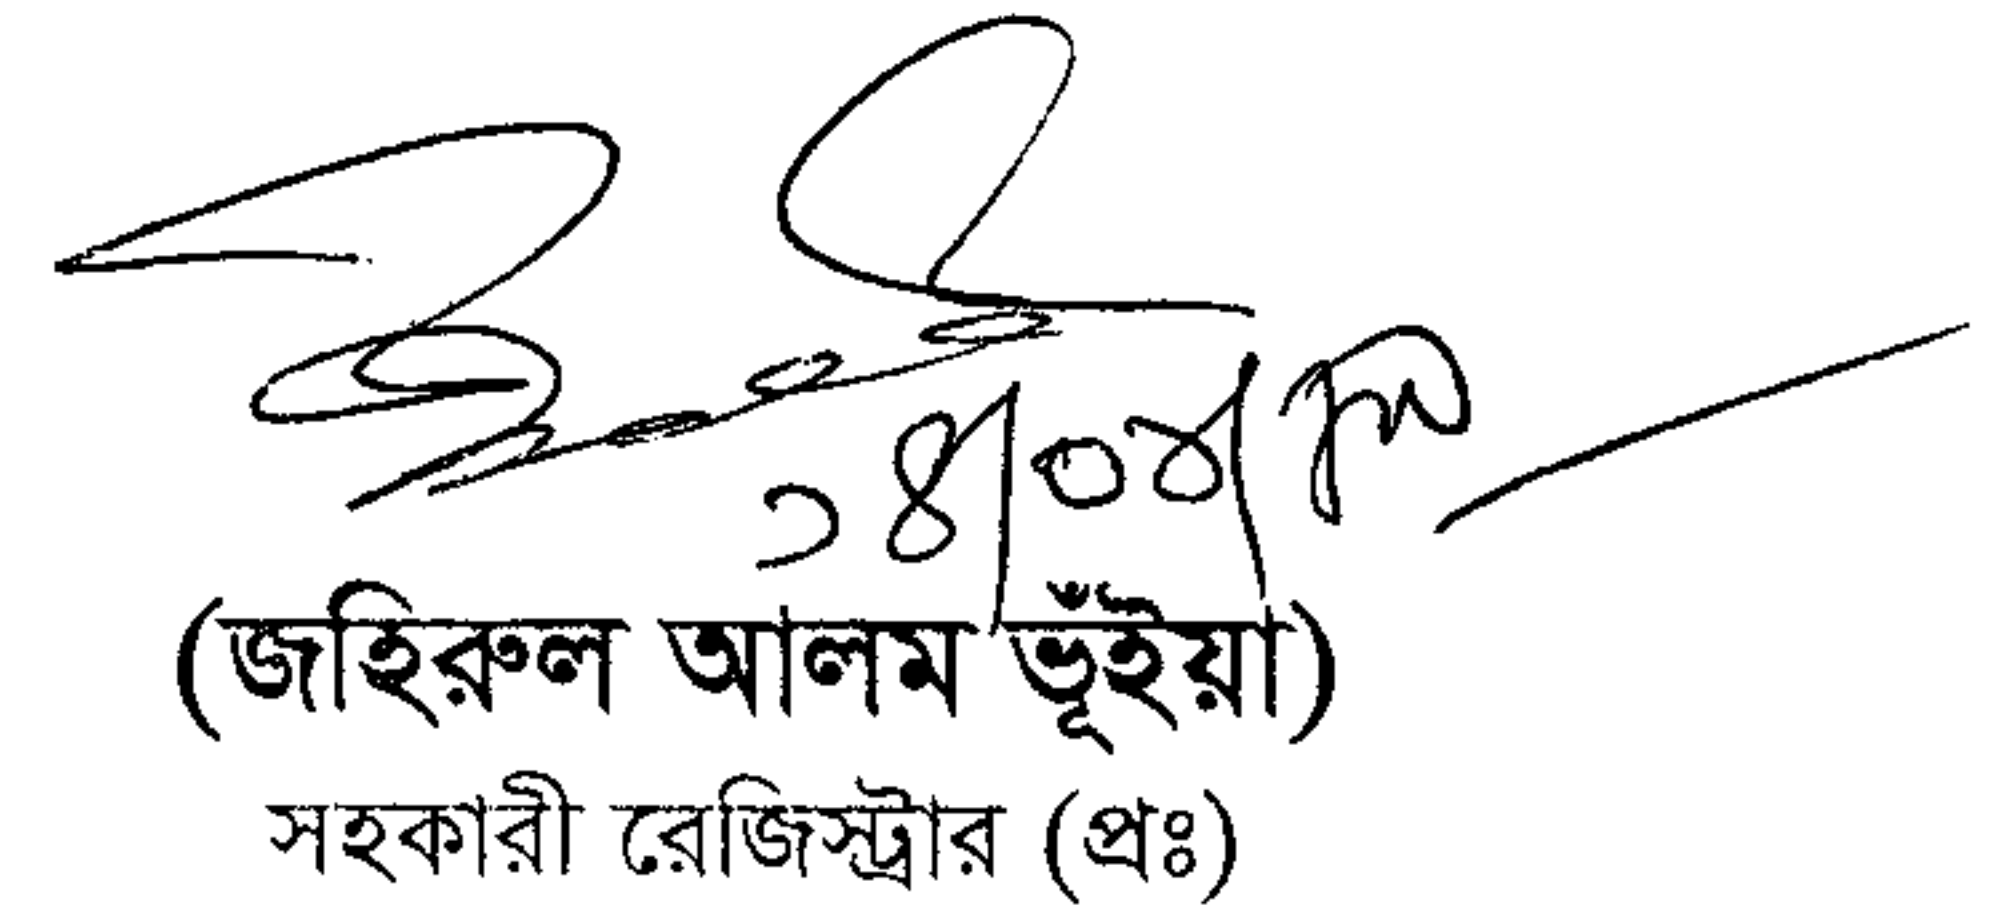 ১৪/০৪/
(জহিরুল আলম ভূঁইয়া)
সহকারী রেজিস্ট্রার (প্রঃ)